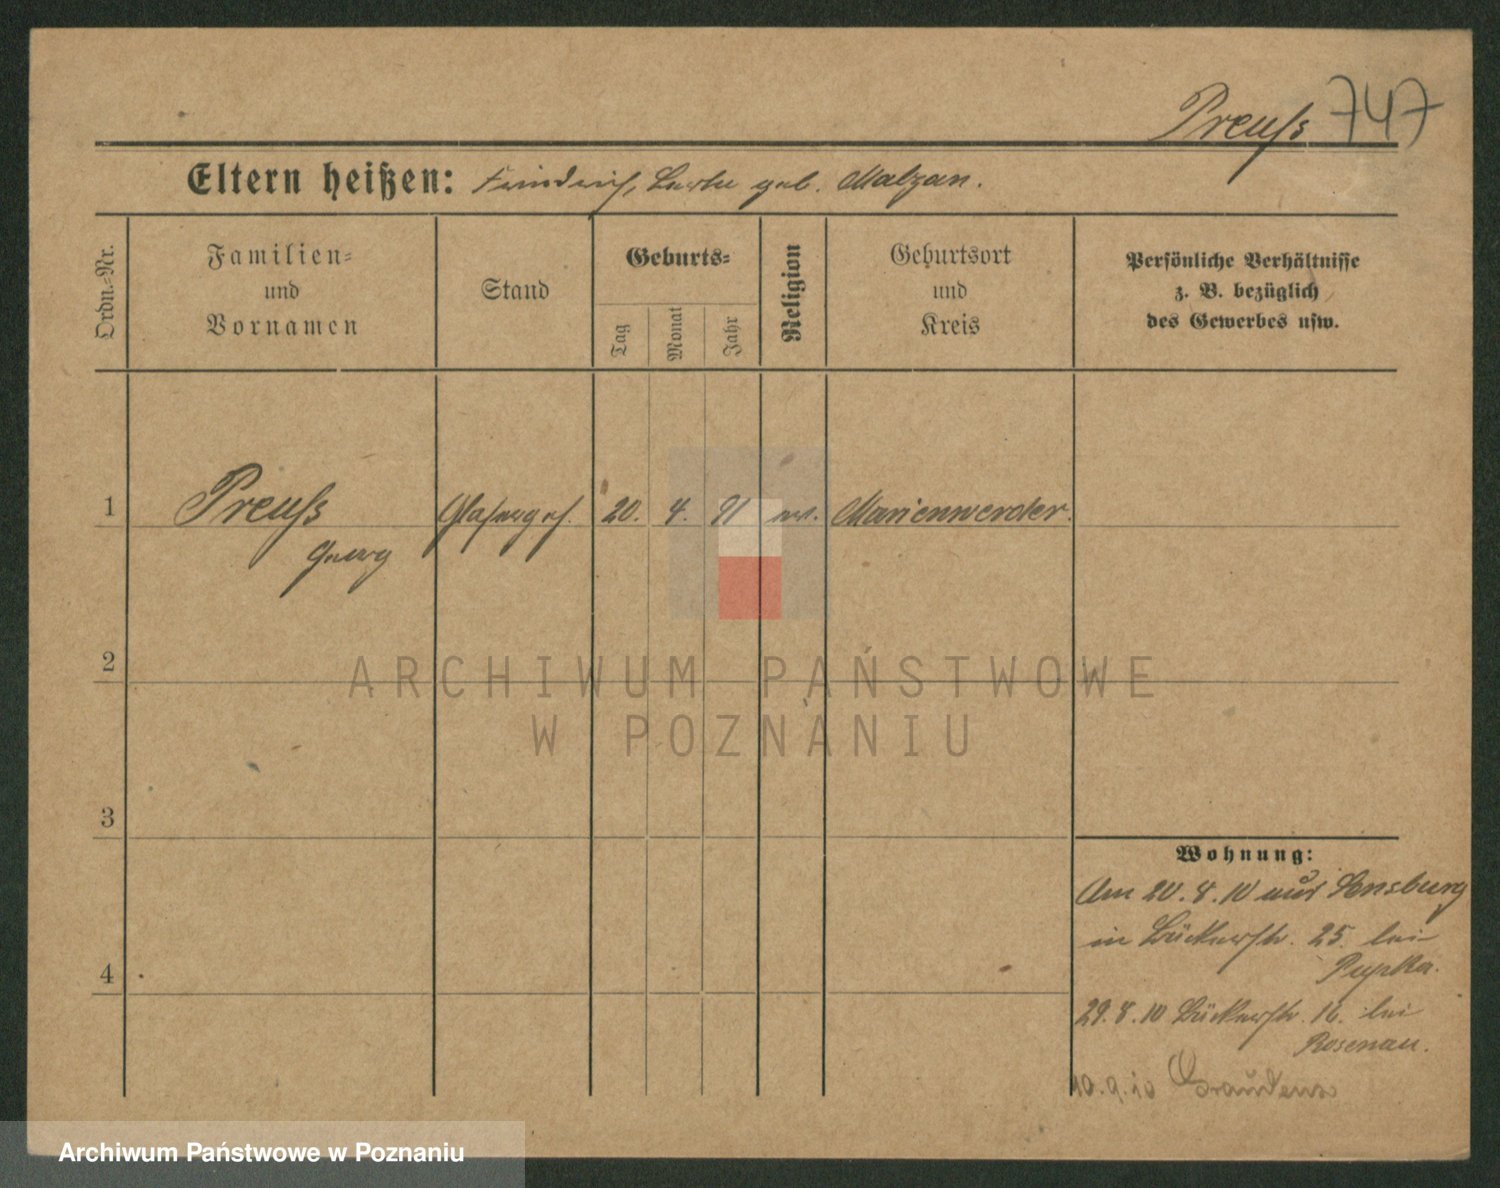 Preuß 747
Eltern heißen: Friedrich, Berta geb. Malzan.
Ordn.-Nr.
Familien-
und
Vornamen
Stand
Geburts-
Tag
Monat
Jahr
Religion
Geburtsort
und
Kreis
Persönliche Verhältnisse
z. B. bezüglich
des Gewerbes usw.
1 Preuß Glaserges. 20. 4. 91 ev. Marienwerder.
Georg
2
3
4
Wohnung:
Am 20. 8. 10 aus Sensburg
in Bäckerstr. 25. bei
29. 8. 10 Bäckerstr. 16. bei
Rosenau.
10. 9. 10 Graudenz
ARCHIWUM PAŃSTWOWE
W POZNANIU
Archiwum Państwowe w Poznaniu